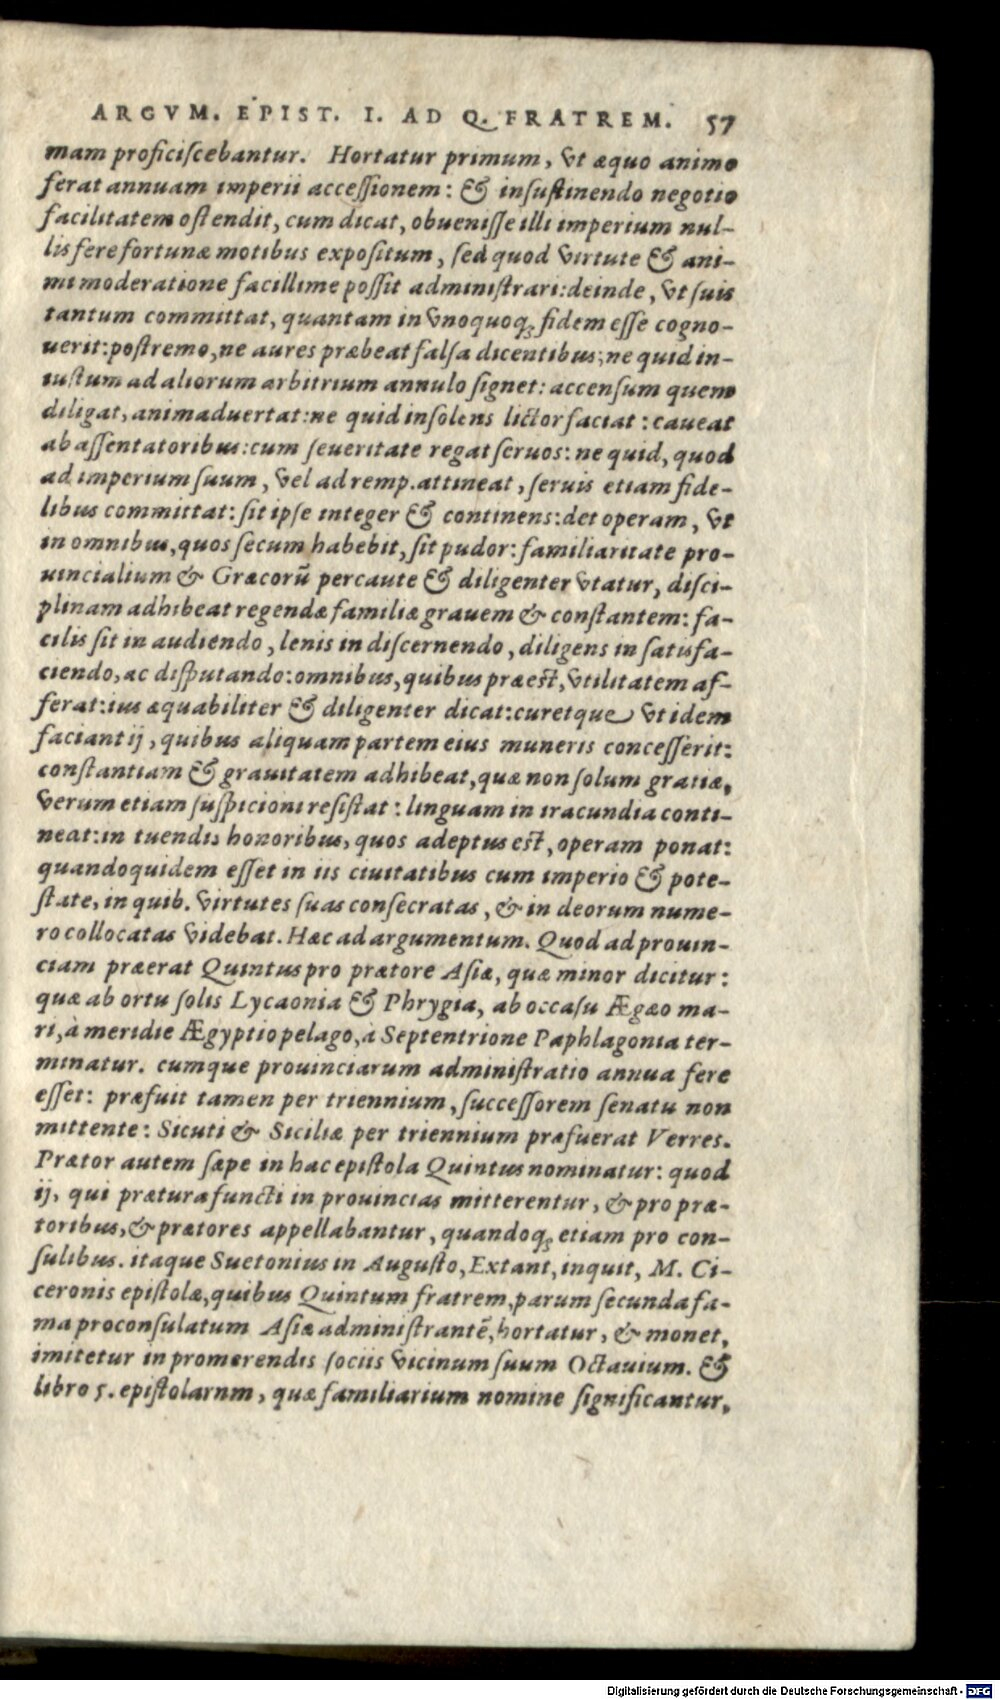 ARGVM. EPIST. I. AD Q. FRATREM. 57
mam proficiſcebantur. Hortatur primum, vt æquo animo
ferat annuam imperii acceſſionem: & in ſuſtinendo negotio
facilitatem oſtendit, cum dicat, obueniſſe illi imperium nul-
lis fere fortunæ motibus expoſitum, ſed quod virtute & ani-
mi moderatione facillime poſſit adminiſtrari: deinde, vt ſuis
tantum committat, quantam in vnoquoq; fidem eſſe cogno-
uerit: poſtremo, ne aures præbeat falſa dicentibus; ne quid in-
iuſtum ad aliorum arbitrium annulo ſignet: accenſum quem
diligat, animaduertat: ne quid inſolens lictor faciat: caueat
ab aſſentatoribus: cum ſeueritate regat ſeruos: ne quid, quod
ad imperium ſuum, vel ad remp. attineat, ſeruis etiam fide-
libus committat: ſit ipſe integer & continens: det operam, vt
in omnibus, quos ſecum habebit, ſit pudor: familiaritate pro-
uincialium & Græcorū percaute & diligenter vtatur, diſci-
plinam adhibeat regendæ familiæ grauem & conſtantem: fa-
cilis ſit in audiendo, lenis in diſcernendo, diligens in ſatisfa-
ciendo, ac diſputando: omnibus, quibus præeſt, vtilitatem af-
ferat: ius æquabiliter & diligenter dicat: curetque vt idem
faciant ij, quibus aliquam partem eius muneris conceſſerit:
conſtantiam & grauitatem adhibeat, quæ non ſolum gratiæ,
verum etiam ſuſpicioni reſiſtat: linguam in iracundia conti-
neat: in tuendis honoribus, quos adeptus eſt, operam ponat:
quandoquidem eſſet in iis ciuitatibus cum imperio & pote-
ſtate, in quib. virtutes ſuas conſecratas, & in deorum nume-
ro collocatas videbat. Hæc ad argumentum. Quod ad prouin-
ciam præerat Quintus pro prætore Aſiæ, quæ minor dicitur:
quæ ab ortu ſolis Lycaonia & Phrygia, ab occaſu Ægæo ma-
ri, à meridie Ægyptio pelago, à Septentrione Paphlagonia ter-
minatur. cumque prouinciarum adminiſtratio annua fere
eſſet: præfuit tamen per triennium, ſucceſſorem ſenatu non
mittente: Sicuti & Siciliæ per triennium præfuerat Verres.
Prætor autem ſæpe in hac epiſtola Quintus nominatur: quod
ij, qui prætura functi in prouincias mitterentur, & pro præ-
toribus, & prætores appellabantur, quandoq; etiam pro con-
ſulibus. itaque Suetonius in Auguſto, Extant, inquit, M. Ci-
ceronis epiſtolæ, quibus Quintum fratrem, parum ſecunda fa-
ma proconſulatum Aſiæ adminiſtrantē, hortatur, & monet,
imitetur in promerendis ſociis vicinum ſuum Octauium. &
libro 5. epiſtolarnm, quæ familiarium nomine ſignificantur,
Digitalisierung gefördert durch die Deutsche Forschungsgemeinschaft - DFG